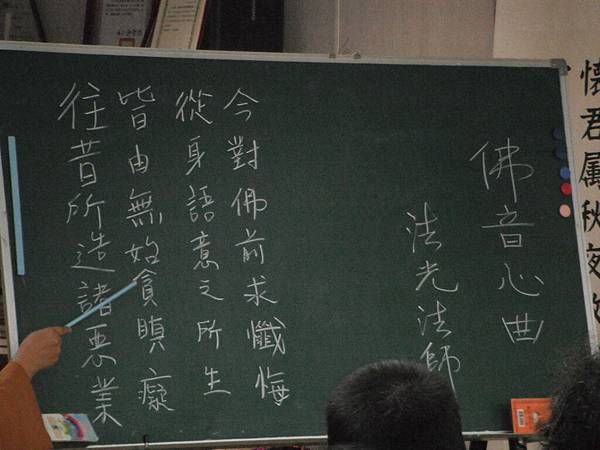 佛音心曲
法光法師
往昔所造諸惡業
皆由無始貪瞋癡
從身語意之所生
今對佛前求懺悔
懷君属秋夜